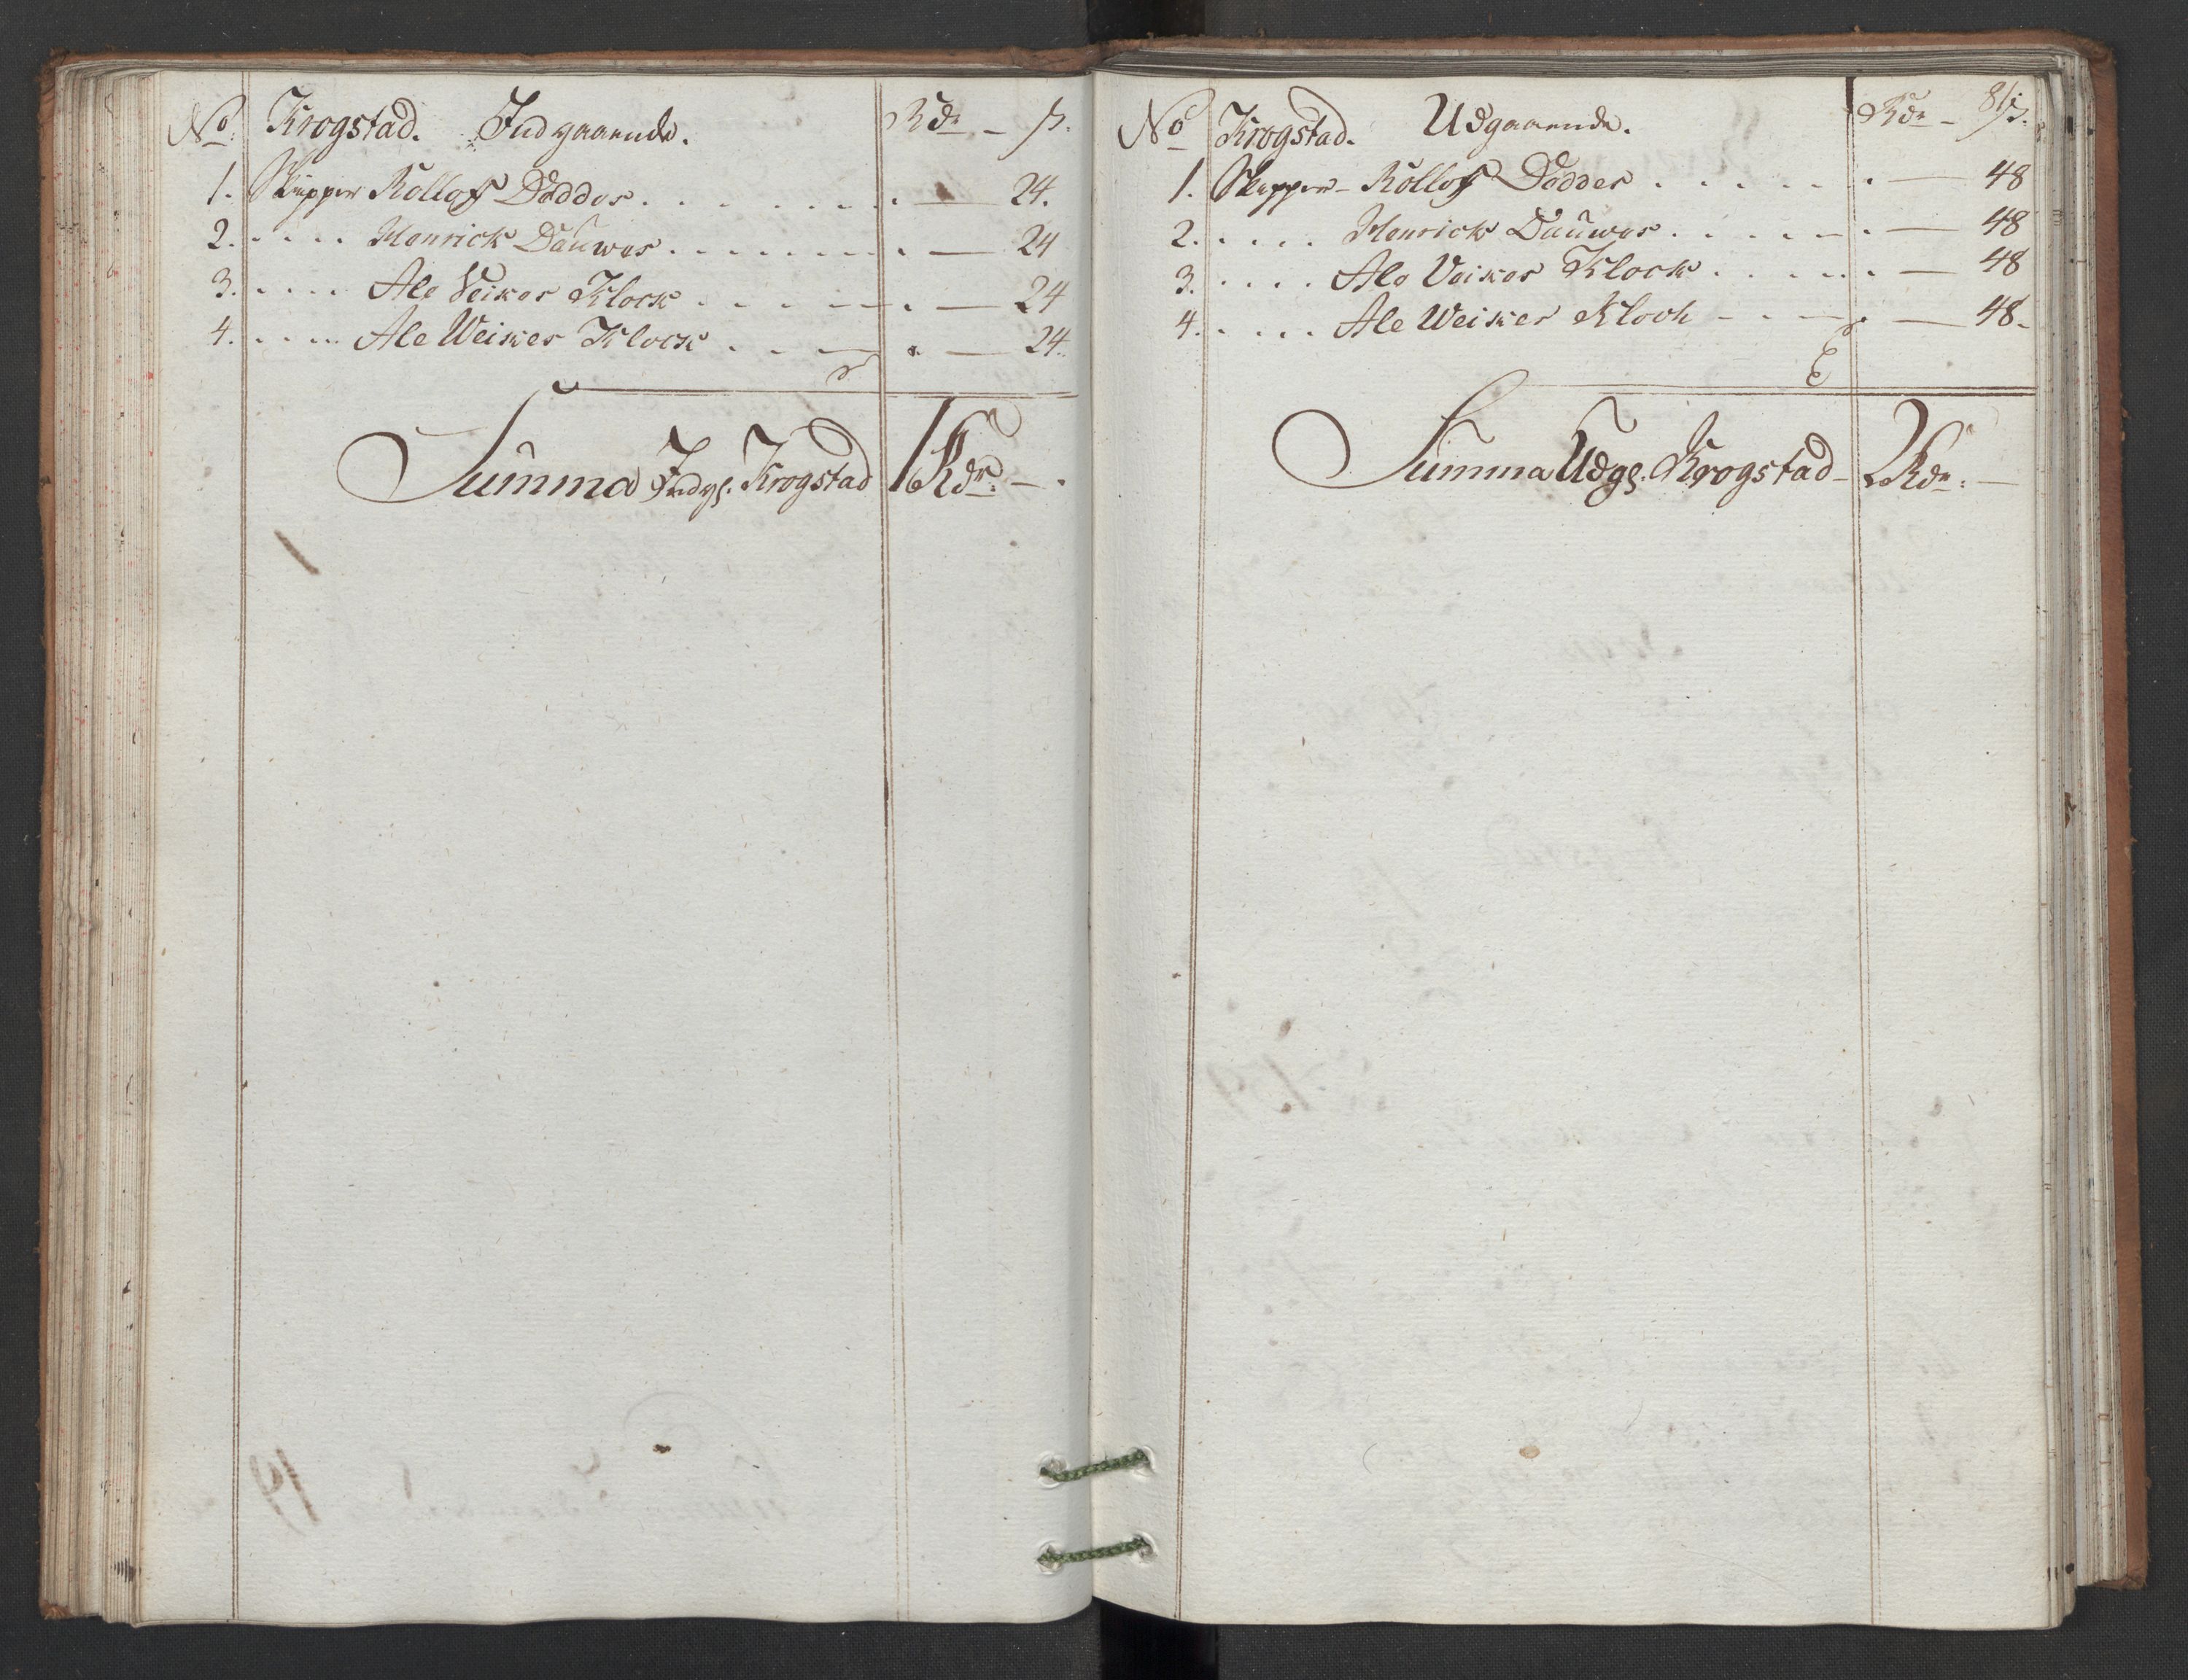 No. Krogstad. Indgaaende. Rdr - ß.
1. Skipper Rollof Dodder . . . . . . . — 24.
2. . . . . Henrick Dauwes . . . . . . . . — 24
3. . . . . Ale Veiker Klock . . . . . . — 24
4. . . . . Ale Weiker Klock . . . — 24.
Summa Indg. Krogstad 1 Rdr. — .
81
No Krogstad. Udgaaende. Rdr - ß.
1. Skipper - Rollof Dodder . . . . . . . — 48
2. . . . . Henrick Dauwes . . . . . . — 48
3. . . . . Ale Veiker Klock . . . . . . — 48
4. . . . . Ale Weiker Klock - - - . — 48.
Summa Udg. Krogstad - 2 Rdr. —